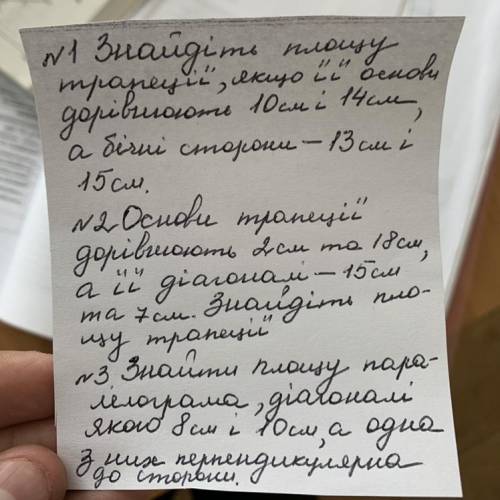 №1 Знайдіть площу
трапеції, якщо її основи
дорівнюють 10см і 14см,
а бічні сторони – 13см і
15см.
№2 Основи трапеції
дорівнюють 2см та 18см,
а її діагоналі – 15см
та 7см. Знайдіть пло-
щу трапеції
№3 Знайти площу пара-
лелограма, діагоналі
якого 8см і 10см, а одна
з них перпендикулярна
до сторони.